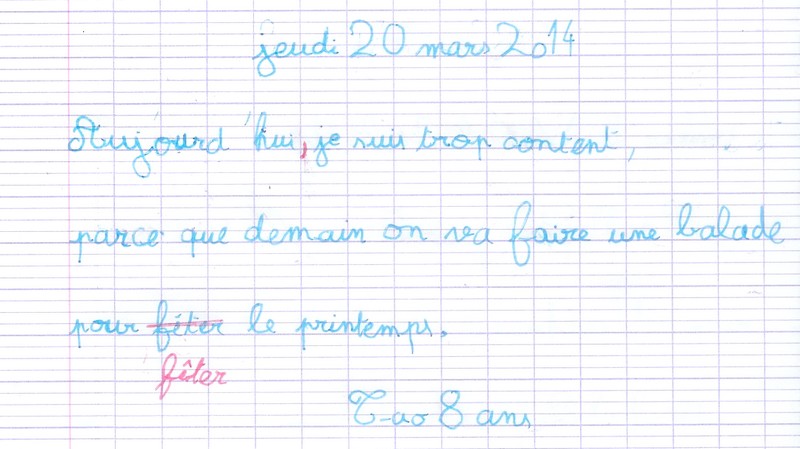 jeudi 20 mars 2014
Aujourd'hui, je suis trop content,
parce que demain on va faire une balade
pour fétér le printemps.
fêter
T-ao 8 ans